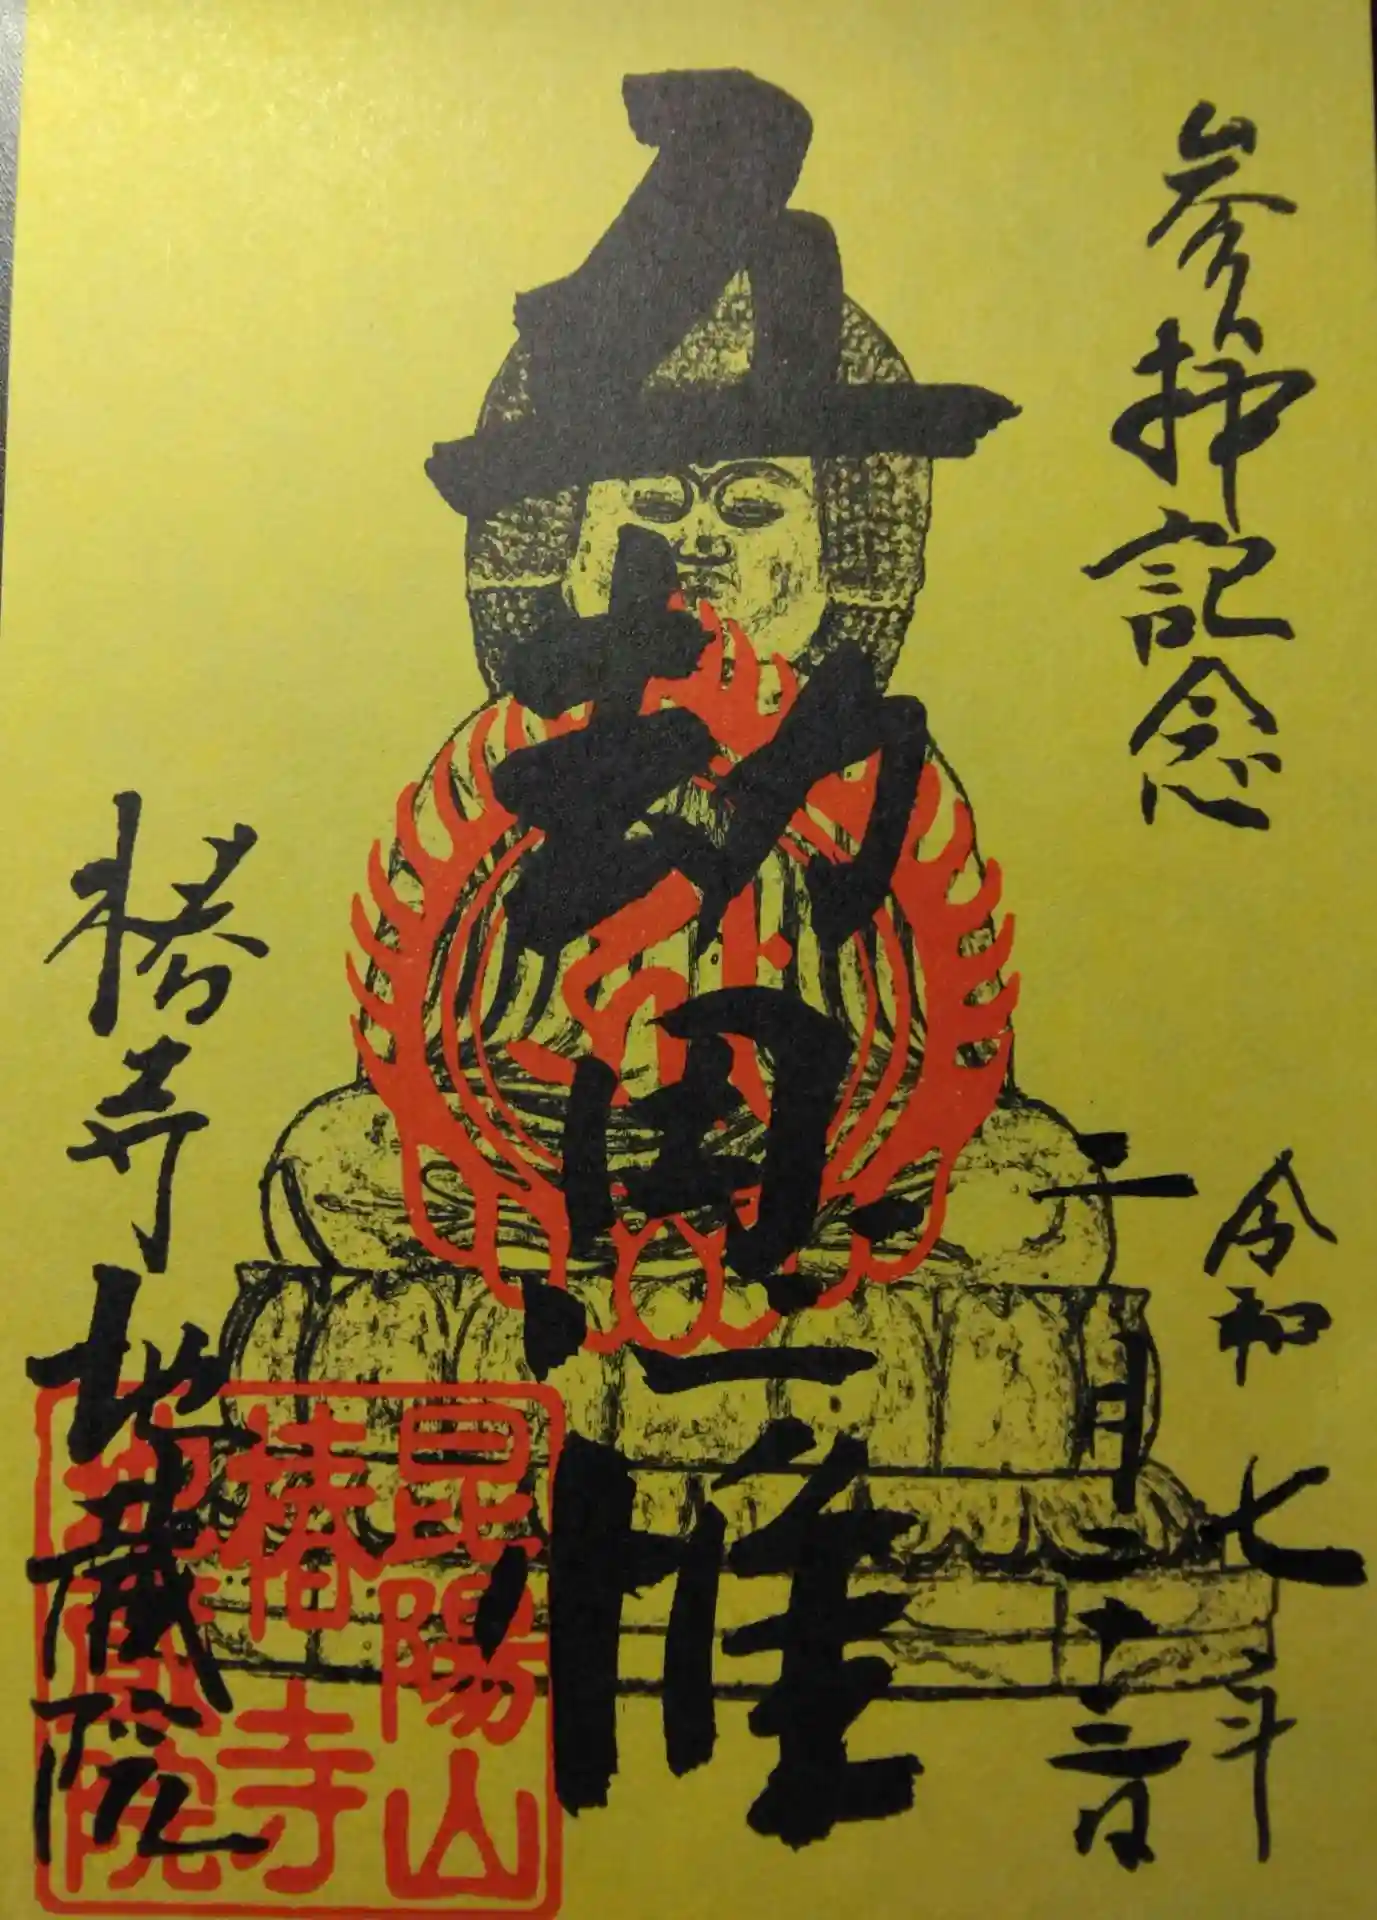 参拝記念
令和七年
二月二十三日
五劫思惟
椿寺地蔵院
昆陽山
椿寺
地蔵院